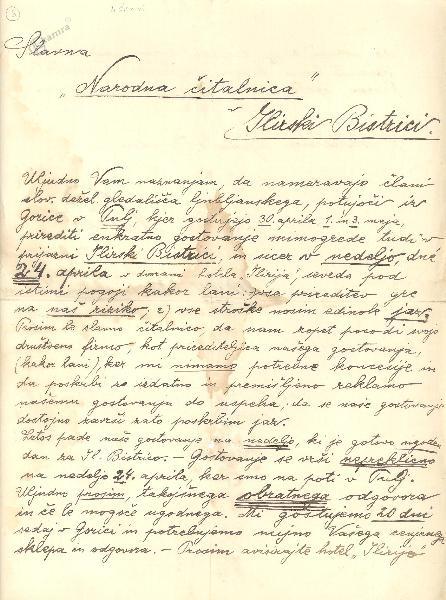 Slavna
„Narodna čitalnica"
Ilirski Bistrici.
Uljudno Vam naznanjam, da nameravajo člani
slov. dežel. gledališča ljubljanskega, potujoči iz
Gorice v Pulj, kjer gostujejo 30. aprila 1. in 3. maja,
prirediti enkratno gostovanje mimogrede tudi v
prijazni Ilirski Bistrici, in sicer v nedeljo, dné
24. aprila v dvorani hotela „Ilirija", seveda pod
istimi pogoji kakor lani: vsa prireditev gre
na naš riziko, z vse stroške nosim edinole jaz.
Prosim to slavno čitalnico, da nam zopet posodi svojo
društveno firmo kot prirediteljica našega gostovanja,
(kakor lani), ker mi nimamo potrebne koncesije in
da poskrbi za izdatno in premišljeno reklamo
našemu gostovanju do uspeha; da se naše gostovanje
dostojno završi zato poskrbim jaz.
Letos pade naše gostovanje na nedeljo, ki je gotovo ugoden
dan za Il. Bistrico. – Gostovanje se vrši nepreklicno
na nedeljo 24. aprila, ker smo na poti v Pulj.
Uljudno prosim, takojšnega obratnega odgovora
in če le mogoče ugodnega. Mi gostujemo 20 dni
sedaj v Gorici in potrebujemo nujno Vašega cenjenega
sklepa in odgovora. – Prosim avizirajte hotel „Ilirijo"